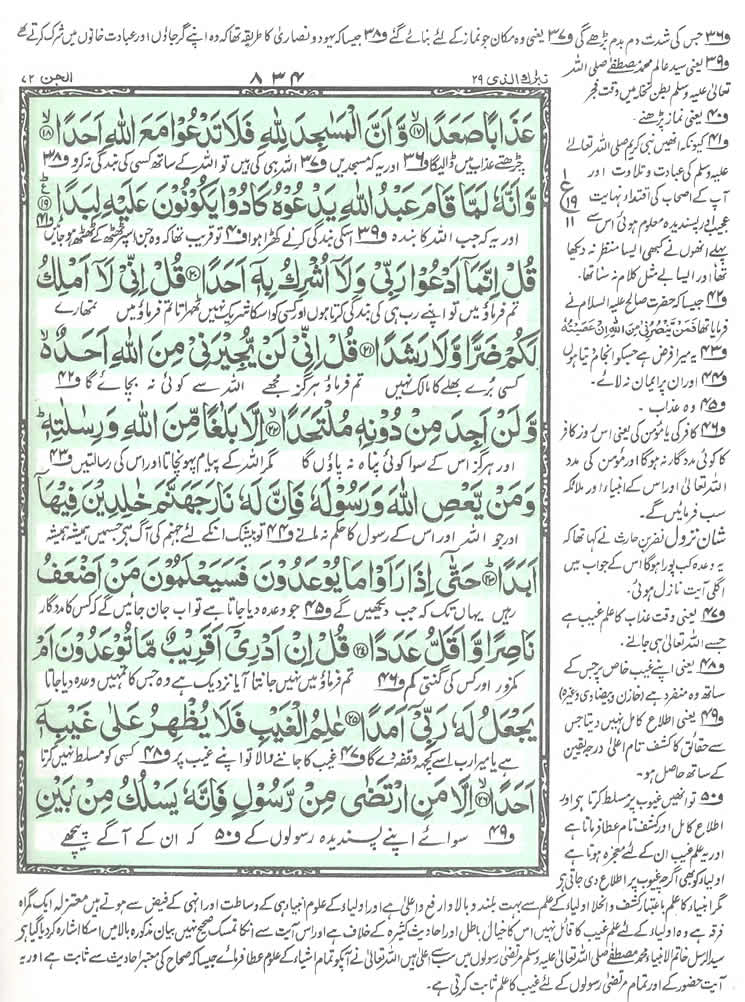 و۳۶ جس کی شدت دم بدم بڑھے گی و۳۷ یعنی وہ مکان جو نماز کے لئے بنائے گئے و۳۸ جیسا کہ یہود و نصاریٰ کا طریقہ تھا کہ وہ اپنے گرجاؤں اور عبادت خانوں میں شرک کرتے تھے
تبٰرک الذی ۲۹
۸۳۴
الجن ۷۲
عَذَابًا صَعَدًا ﴿۱۷﴾ وَّاَنَّ الْمَسٰجِدَ لِلّٰهِ فَلَا تَدْعُوْا مَعَ اللّٰهِ اَحَدًا ﴿۱۸﴾
چڑھتے عذاب میں ڈالیگا و۳۶ اور یہ کہ مسجدیں و۳۷ اللہ ہی کی ہیں تو اللہ کے ساتھ کسی کی بندگی نہ کرو و۳۸
وَّاَنَّهٗ لَمَّا قَامَ عَبْدُ اللّٰهِ يَدْعُوْهُ كَادُوْا يَكُوْنُوْنَ عَلَيْهِ لِبَدًا ﴿۱۹﴾
اور یہ کہ جب اللہ کا بندہ و۳۹ اسکی بندگی کرنے کھڑا ہوا و۴۰ تو قریب تھا کہ وہ جن اسپر ٹھٹھ کے ٹھٹھ ہو جائیں و۴۱
قُلْ اِنَّمَاۤ اَدْعُوْا رَبِّيْ وَلَاۤ اُشْرِكُ بِهٖۤ اَحَدًا ﴿۲۰﴾ قُلْ اِنِّيْ لَاۤ اَمْلِكُ
تم فرماؤ میں تو اپنے رب ہی کی بندگی کرتا ہوں اور کسی کو اسکا شریک نہیں ٹھہراتا تم فرماؤ میں تمھارے
لَكُمْ ضَرًّا وَّلَا رَشَدًا ﴿۲۱﴾ قُلْ اِنِّيْ لَنْ يُّجِيْرَنِيْ مِنَ اللّٰهِ اَحَدٌ
کسی بُرے بھلے کا مالک نہیں تم فرماؤ ہرگز مجھے اللہ سے کوئی نہ بچائے گا و۴۲
وَّلَنْ اَجِدَ مِنْ دُوْنِهٖ مُلْتَحَدًا ﴿۲۲﴾ اِلَّا بَلٰغًا مِّنَ اللّٰهِ وَرِسٰلٰتِهٖ
اور ہرگز اس کے سوا کوئی پناہ نہ پاؤں گا مگر اللہ کے پیام پہونچاتا اور اس کی رسالتیں و۴۳
وَمَنْ يَّعْصِ اللّٰهَ وَرَسُوْلَهٗ فَاِنَّ لَهٗ نَارَ جَهَنَّمَ خٰلِدِيْنَ فِيْهَاۤ
اور جو اللہ اور اس کے رسول کا حکم نہ مانے و۴۴ تو بیشک انکے لئے جہنم کی آگ ہے جسمیں ہمیشہ ہمیشہ
اَبَدًا ﴿۲۳﴾ حَتّٰۤى اِذَا رَاَوْا مَا يُوْعَدُوْنَ فَسَيَعْلَمُوْنَ مَنْ اَضْعَفُ
رہیں یہاں تک کہ جب دیکھیں گے و۴۵ جو وعدہ دیا جاتا ہے تو اب جان جائیں گے کہ کس کا مددگار
نَاصِرًا وَّاَقَلُّ عَدَدًا ﴿۲۴﴾ قُلْ اِنْ اَدْرِيْۤ اَقَرِيْبٌ مَّا تُوْعَدُوْنَ اَمْ
کمزور اور کس کی گنتی کم و۴۶ تم فرماؤ میں نہیں جانتا آیا نزدیک ہے وہ جس کا تمہیں وعدہ دیا جاتا
يَجْعَلُ لَهٗ رَبِّيْۤ اَمَدًا ﴿۲۵﴾ عٰلِمُ الْغَيْبِ فَلَا يُظْهِرُ عَلٰى غَيْبِهٖۤ
ہے یا میرا رب اسے کچھ وقفہ دے گا و۴۷ غیب کا جاننے والا تو اپنے غیب پر و۴۸ کسی کو مسلط نہیں کرتا
اَحَدًا ﴿۲۶﴾ اِلَّا مَنِ ارْتَضٰى مِنْ رَّسُوْلٍ فَاِنَّهٗ يَسْلُكُ مِنْۢ بَيْنِ
و۴۹ سوائے اپنے پسندیدہ رسولوں کے و۵۰ کہ ان کے آگے پیچھے
و۳۹ یعنی سید عالم محمد مصطفٰے صلی اللہ
تعالیٰ علیہ وسلم بطن نخلہ میں وقت فجر
و۴۰ یعنی نماز پڑھنے۔
و۴۱ کیونکہ انھیں نبی کریم صلی اللہ تعالےٰ
علیہ وسلم کی عبادت و تلاوت اور
آپ کے اصحاب کی اقتدا نہایت
عجیب اور پسندیدہ معلوم ہوئی اس سے
پہلے انھوں نے کبھی ایسا منظر نہ دیکھا
تھا اور ایسا بے مثل کلام نہ سنا تھا۔
و۴۲ جیسا کہ حضرت صالح علیہ السلام نے
فرمایا تھا فَمَنْ يَّنْصُرُنِيْ مِنَ اللّٰهِ اِنْ عَصَيْتُهٗ
و۴۳ یہ میرا فرض ہے جسکو انجام دیتا ہوں
و۴۴ اور ان پر ایمان نہ لائے۔
و۴۵ وہ عذاب۔
و۴۶ کافر کی یا مومن کی یعنی اس روز کافر
کا کوئی مددگار نہ ہوگا اور مومن کی مدد
اللہ تعالیٰ اور اس کے انبیاء اور ملائکہ
سب فرمائیں گے۔
شان نزول نضر بن حارث نے کہا تھا کہ
یہ وعدہ کب پورا ہوگا اس کے جواب میں
اگلی آیت نازل ہوئی۔
و۴۷ یعنی وقت عذاب کا علم غیب ہے
جسے اللہ تعالیٰ ہی جانے۔
و۴۸ یعنی اپنے غیب خاص پر جس کے
ساتھ وہ منفرد ہے (خازن و بیضاوی وغیرہ)
و۴۹ یعنی اطلاع کامل نہیں دیتا جس
سے حقائق کا کشف تام اعلیٰ درجہ یقین
کے ساتھ حاصل ہو۔
و۵۰ تو انھیں غیوب پر مسلط کرتا ہے اور
اطلاع کامل اور کشف تام عطا فرماتا ہے
اور یہ علم غیب ان کے لئے معجزہ ہوتا ہے
اولیاء کو بھی اگرچہ غیوب پر اطلاع دی جاتی ہے
مگر انبیاء کا علم باعتبار کشف و انجلا اولیاء کے علم سے بہت بلند و بالا و ارفع و اعلیٰ ہے اور اولیاء کے علوم انبیاء ہی کے وساطت اور انہی کے فیض سے ہوتے ہیں معتزلہ ایک گمراہ
فرقہ ہے وہ اولیاء کے لئے علم غیب کا قائل نہیں اس کا خیال باطل اور احادیث کثیرہ کے خلاف ہے اور اس آیت سے انکا تمسک صحیح نہیں بیان مذکورہ بالا میں اسکا اشارہ کر دیا گیا ہے
سید الرسل خاتم الانبیاء محمد مصطفٰے صلی اللہ تعالیٰ علیہ وسلم مرتضیٰ رسولوں میں سب سے اعلیٰ ہیں اللہ تعالیٰ نے آپکو تمام اشیاء کے علوم عطا فرمائے جیسا کہ صحاح کی معتبر احادیث سے ثابت ہے اور یہ
آیت حضور کے اور تمام مرتضیٰ رسولوں کے لئے غیب کا علم ثابت کرتی ہے۔